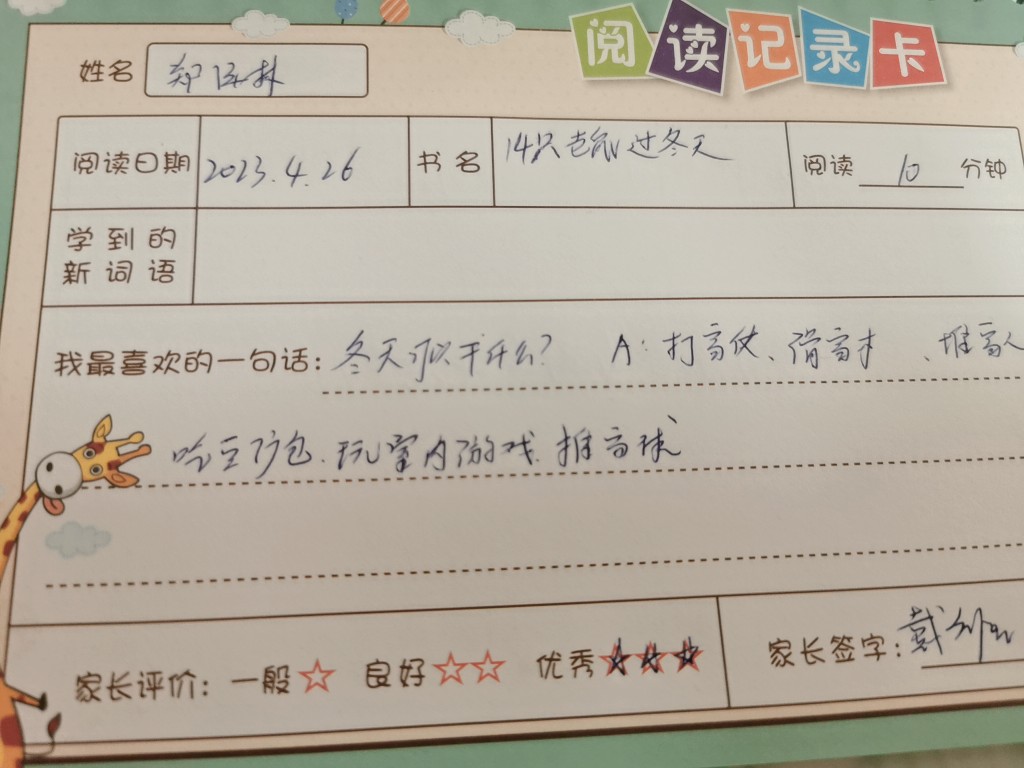 阅读记录卡
姓名 郑
阅读日期 2023.4.26 书名 14只老鼠过冬天 阅读 10 分钟
学到的
新词语
我最喜欢的一句话：冬天可以干什么？ A：打雪仗、滑雪、堆雪人
吃豆沙包、玩室内游戏、推雪球
家长评价：一般☆ 良好☆☆ 优秀★★★ 家长签字：戴